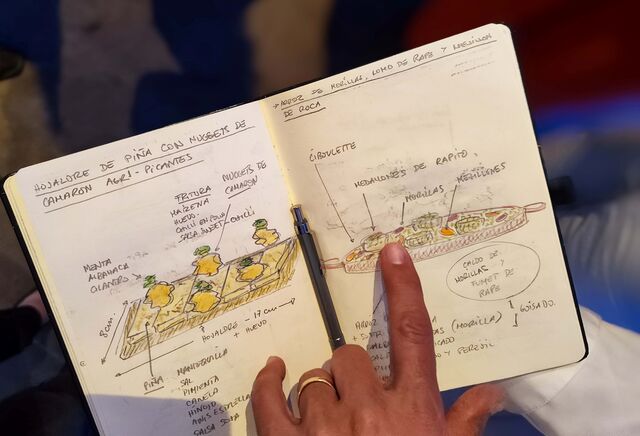 HOJALDRE DE PIÑA CON NUGGETS DE
CAMARON AGRI-PICANTES
FRITURA
MAIZENA
HUEVO
CHILI EN POLVO
SALSA SWEET CHILI
NUGGETS DE
CAMARON
MENTA
ALBAHACA
CILANTRO
8 cm
HOJALDRE - 17 cm
+ HUEVO
PIÑA
MANTEQUILLA
SAL
PIMIENTA
CANELA
HINOJO
ANIS ESTRELLA
SALSA SOJA
→ ARROZ DE MORILLAS, LOMO DE RAPE Y MEJILLON
DE ROCA
CIBOULETTE
MEDALLONES DE RAPITO
MORILLAS
MEJILLONES
CALDO DE
MORILLAS Y
FUMET DE
RAPE
GUISADO.
ARROZ
(MORILLA)
Y PEREJIL